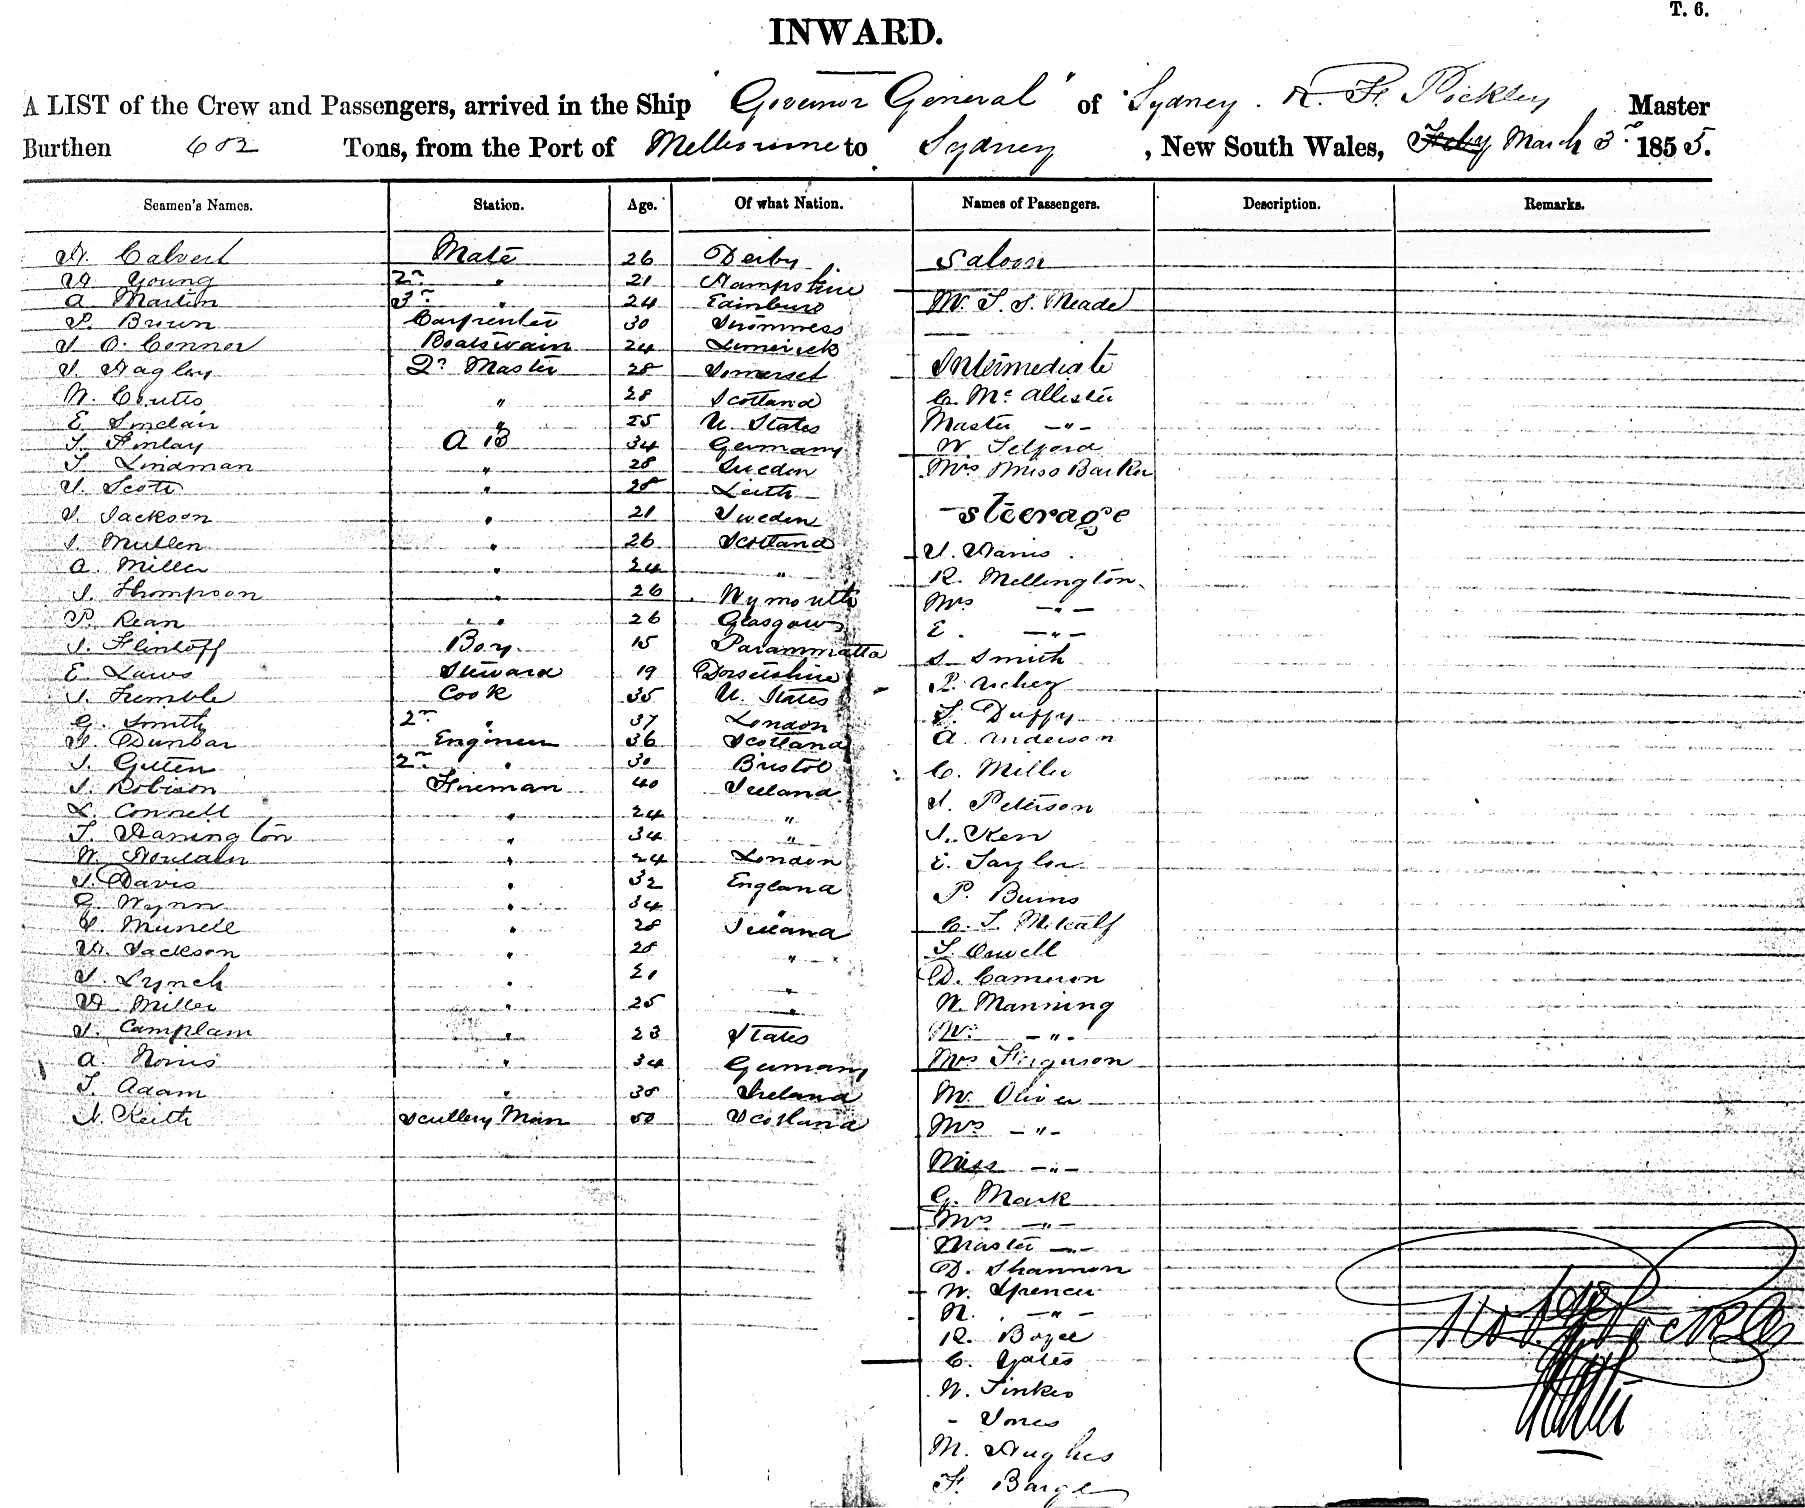 T. 6.
INWARD.
A LIST of the Crew and Passengers, arrived in the Ship "Govenor General" of Sydney. R. F. Pockley, Master
Burthen 682 Tons, from the Port of Melbourne to Sydney, New South Wales, Feby March 3rd 1855.
Seamen's Names. Station. Age. Of what Nation. Names of Passengers. Description. Remarks.
H. Calvert Mate 26 Derby Saloon
H Young 2nd " 21 Hampshire
A Martin 3rd " 24 Edinburo Mr. T. S. Meade
P. Brown Carpenter 30 Stromness
J O. Conner Boatswain 24 Limerick
J. Nagley Qr Master 28 Somerset Intermediate
W. Coutts " 28 Scotland C. McAllister
E Sinclair " 25 U. States Master -"-
T. Finlay A B 34 Germany W. Telford
T. Lindman " 28 Sweden Mrs Miss Barker
J. Scott " 28 Leith
J. Jackson " 21 Sweden Steerage
J. Mullen " 26 Scotland J. Harris
A. Miller " 24 " R. Mellington
J Thompson " 26 Wymouth Mrs -"-
P. Rean " 26 Glasgow E. -"-
J. Flintoff Boy. 15 Parammatta S Smith
E Laws Steward 19 Dorsetshire P.
J. Tremble Cook 35 U. States T. Duffy
G. Smith 2nd " 37 London A Anderson
J. Dunbar Engineer 36 Scotland
J. Gitten 2nd " 30 Bristol C. Miller
J. Robison Fireman 40 Ireland
L Connell " 24 " J. Peterson
T. Harrington " 34 " J. Kerr
W. " 24 London E. Taylor
J. Davis " 32 England P. Burns
G Wynn " 34 "
J. Munell " 28 Ireland C. T. Metcalf
H. Jackson " 28 " T. Orwell
J. Lynch " 21 " D. Cameron
H Miller " 25 " W. Manning
J. Camplam " 23 States Mrs -"-
A. Norris " 34 Germany Mrs Ferguson
T. Adam " 38 Ireland Mr. Oliver
J. Keith Scullery Man 50 Scotland Mrs -"-
Miss -"-
G. Mark
Mrs -"-
Master -"-
D. Shannon
W. Spencer
N. -"-
R. Bozee
C. Yates
W. Tinker
- Jones
M. Hughes
F. Barge
Robt F Pockley
Master